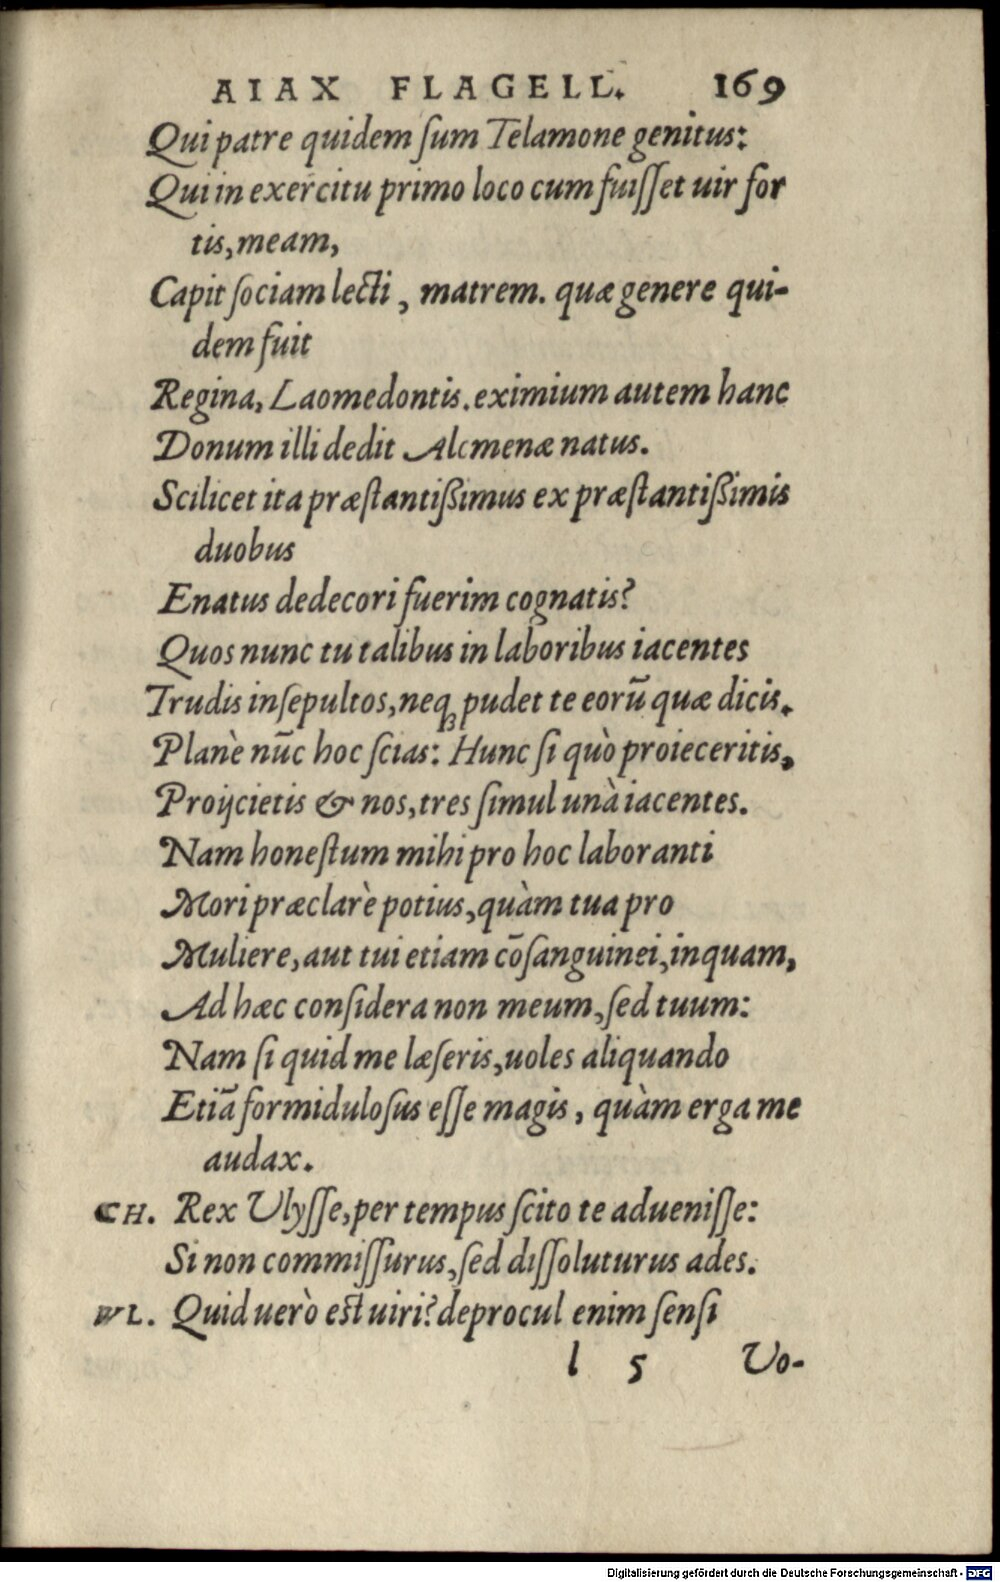 AIAX FLAGELL. 169
Qui patre quidem ſum Telamone genitus:
Qui in exercitu primo loco cum fuiſſet uir for
tis, meam,
Capit ſociam lecti, matrem. quæ genere qui-
dem fuit
Regina, Laomedontis. eximium autem hanc
Donum illi dedit Alcmenæ natus.
Scilicet ita præſtantißimus ex præſtantißimis
duobus
Enatus dedecori fuerim cognatis?
Quos nunc tu talibus in laboribus iacentes
Trudis inſepultos, neqꝫ pudet te eorū quæ dicis.
Planè nūc hoc ſcias: Hunc ſi quò proieceritis,
Proijcietis & nos, tres ſimul unà iacentes.
Nam honeſtum mihi pro hoc laboranti
Mori præclarè potius, quàm tua pro
Muliere, aut tui etiam cōſanguinei, inquam,
Ad hæc conſidera non meum, ſed tuum:
Nam ſi quid me læſeris, uoles aliquando
Etiā formiduloſus eſſe magis, quàm erga me
audax.
CH. Rex Ulyſſe, per tempus ſcito te adueniſſe:
Si non commiſſurus, ſed diſſoluturus ades.
VL. Quid uerò eſt uiri? de procul enim ſenſi
l 5 Vo-
Digitalisierung gefördert durch die Deutsche Forschungsgemeinschaft - DFG